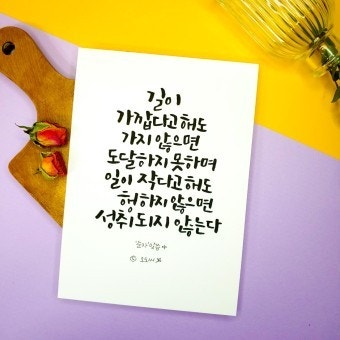 길이
가깝다고 해도
가지 않으면
도달하지 못하며
일이 작다고 해도
행하지 않으면
성취되지 않는다